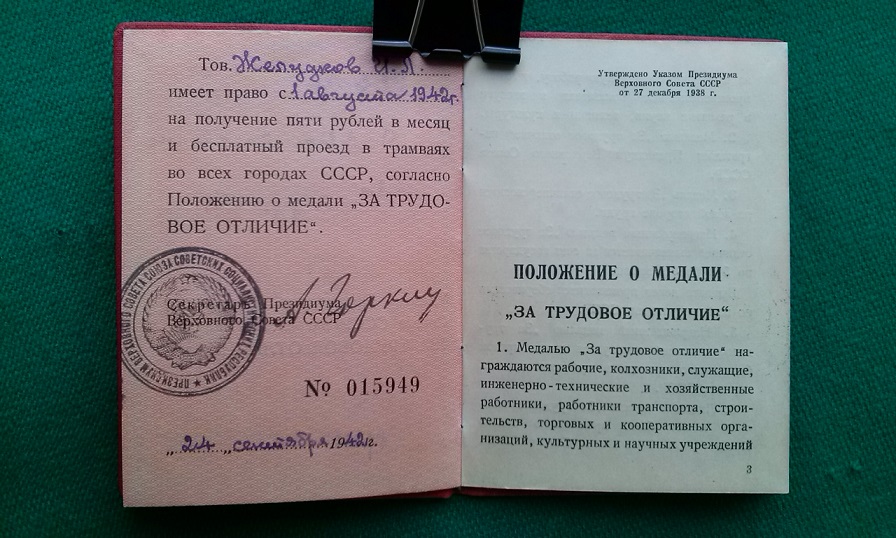 Тов. Желудков И. Л.
имеет право с 1 августа 1942г.
на получение пяти рублей в месяц
и бесплатный проезд в трамваях
во всех городах СССР, согласно
Положению о медали „ЗА ТРУДО-
ВОЕ ОТЛИЧИЕ“.
ПРЕЗИДИУМ ВЕРХОВНОГО СОВЕТА СОЮЗА СОВЕТСКИХ СОЦИАЛИСТИЧЕСКИХ РЕСПУБЛИК
Секретарь Президиума
Верховного Совета СССР
№ 015949
„24„ сентября 1942г.
Утверждено Указом Президиума
Верховного Совета СССР
от 27 декабря 1938 г.
ПОЛОЖЕНИЕ О МЕДАЛИ
„ЗА ТРУДОВОЕ ОТЛИЧИЕ“
1. Медалью „За трудовое отличие“ на-
граждаются рабочие, колхозники, служащие,
инженерно-технические и хозяйственные
работники, работники транспорта, строи-
тельств, торговых и кооперативных орга-
низаций, культурных и научных учреждений
3